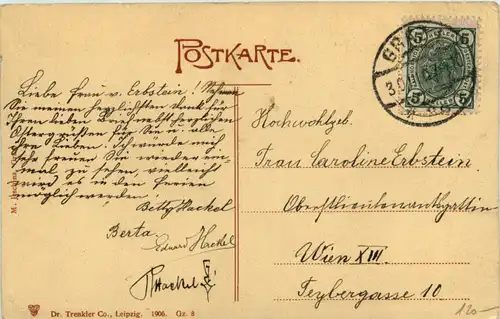 POSTKARTE.
GRAZ
5 5
5 5
Liebe Frau v. Erbstein! Nehmen
Sie meinen herzlichsten Dank für
Ihren lieben Brief nebst herzlichen
Ostergrüßen für Sie u. alle
ihre Lieben! Ich würde mich
sehr freuen Sie wieder ein-
mal zu sehen, vielleicht
wird es in den Ferien
möglich werden!
Betty Hackel
Berta
Eduard Hackel
Hackel
Hochwohlgeb.
Frau Caroline Erbstein
Oberstlieutenantsgattin
Wien XIII
Feybergasse 10
Dr. Trenkler Co., Leipzig. 1906. Gz. 8
120.-